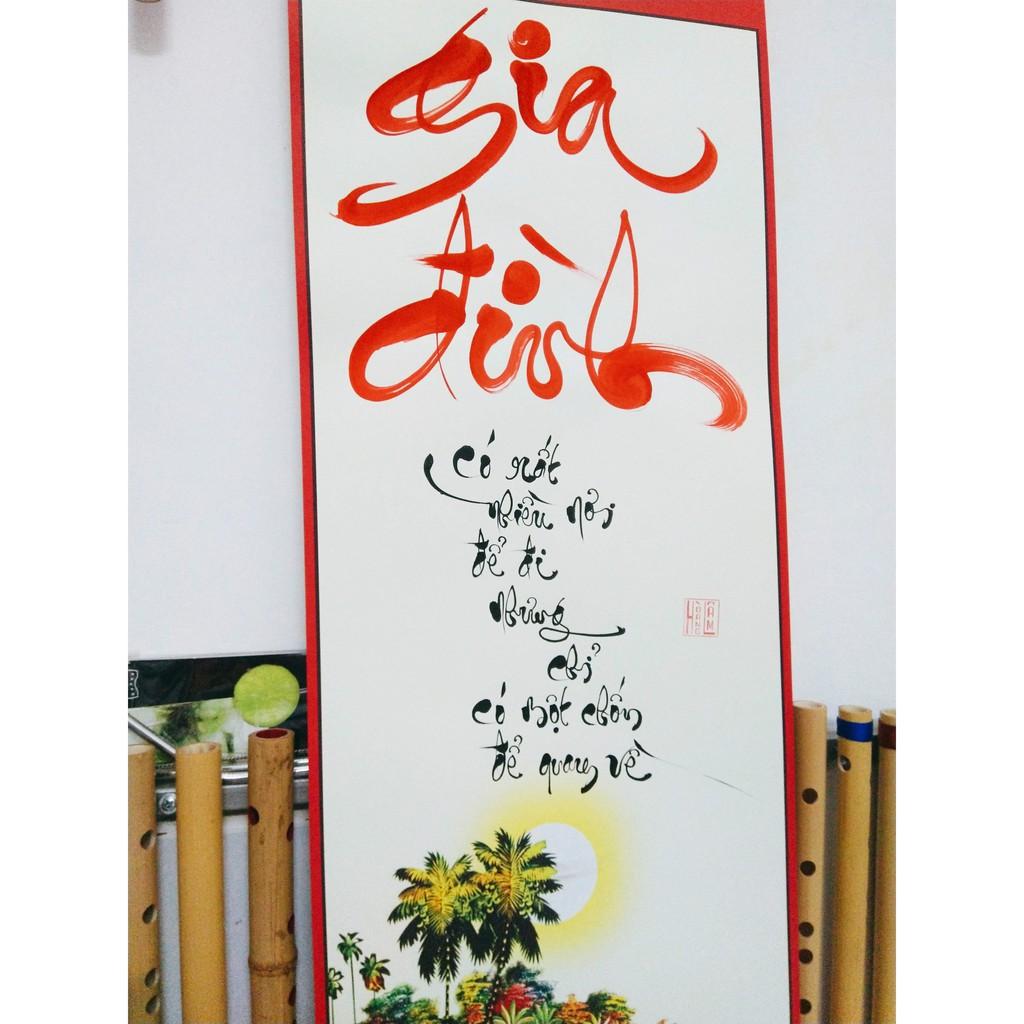 Gia
đình
Có rất
nhiều nơi
để đi
nhưng
chỉ
có một chốn
để quay về
HOÀNG
TÂM